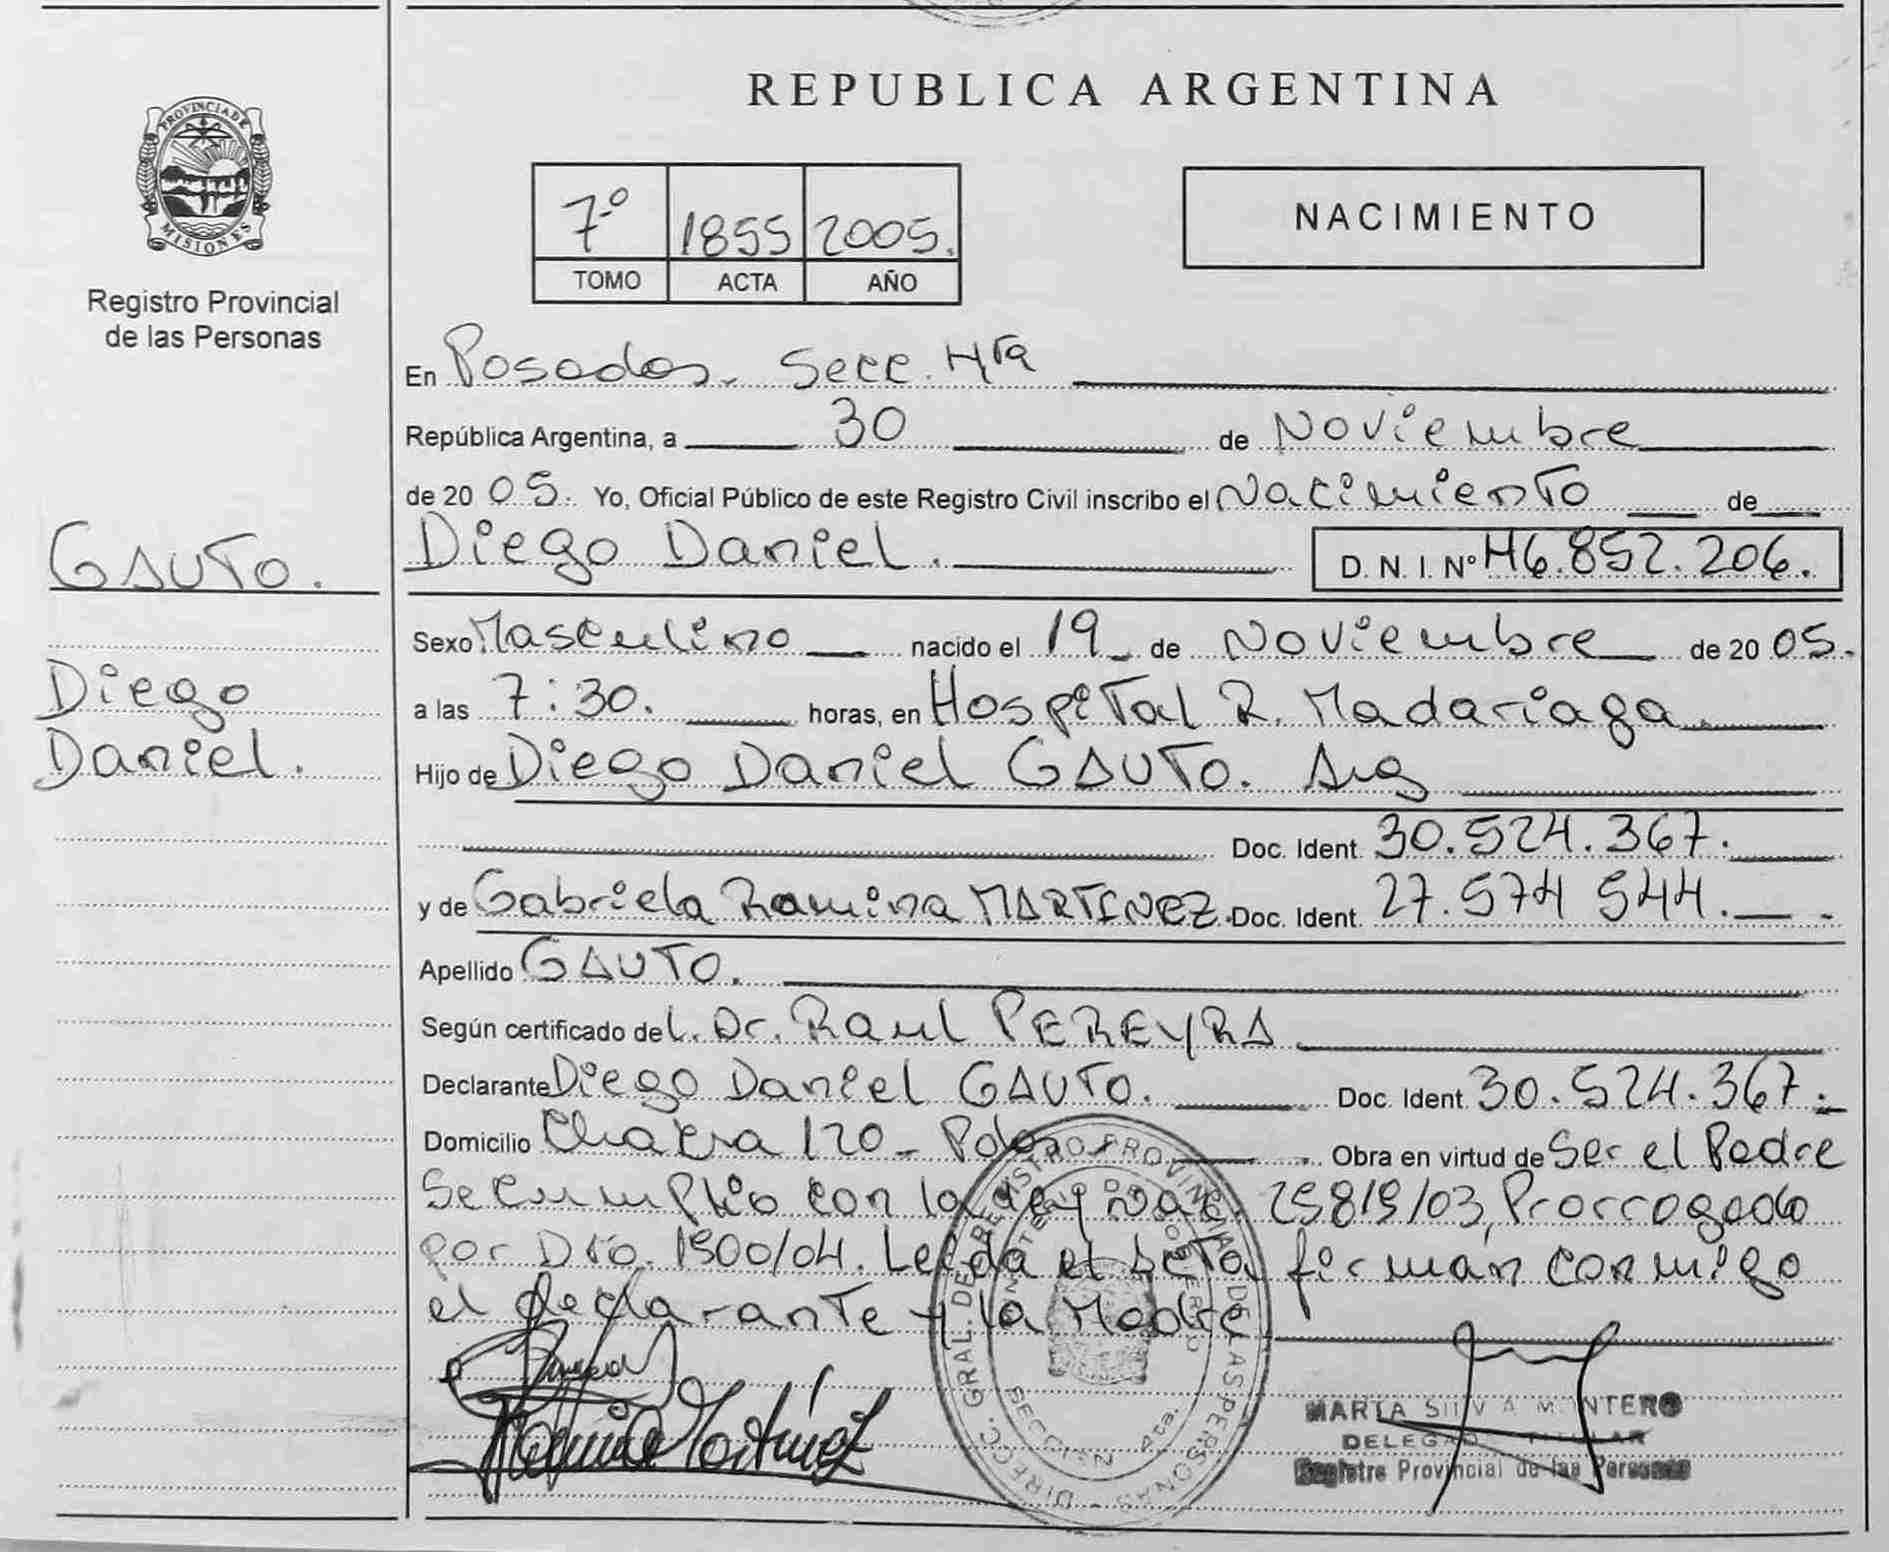 REPUBLICA ARGENTINA
PROVINCIA DE
MISIONES
Registro Provincial
de las Personas
7º 1855 2005.
TOMO ACTA AÑO
NACIMIENTO
En Posadas. Secc. 4ta
República Argentina, a 30 de Noviembre
de 20 05. Yo, Oficial Público de este Registro Civil inscribo el Nacimiento de
GAUTO.
Diego Daniel. D. N. I. Nº 46.852.206.
Sexo Masculino nacido el 19 de Noviembre de 20 05.
Diego
Daniel.
a las 7:30. horas, en Hospital R. Madariaga.
Hijo de Diego Daniel GAUTO. Arg
Doc. Ident. 30.524.367.
y de Gabriela Ramina MARTINEZ. Doc. Ident. 27.574 544.
Apellido GAUTO.
Según certificado del. Dr. Raul PEREYRA
Declarante Diego Daniel GAUTO. Doc. Ident. 30.524.367.
Domicilio Chacra 120 - Pdas Obra en virtud de Ser el Padre
Se cumplio con la Ley Nac. 25819/03, Prorrogado
por Dto. 1500/04. Leída el Acta, firman conmigo
el declarante y la Madre
DIRECC. GRAL. DE REGISTRO PROVINCIAL DE LAS PERSONAS
MINISTERIO DE GOBIERNO
SECCION 4ta.
MARTA SILVA MONTERO
DELEGADA TITULAR
Registro Provincial de las Personas